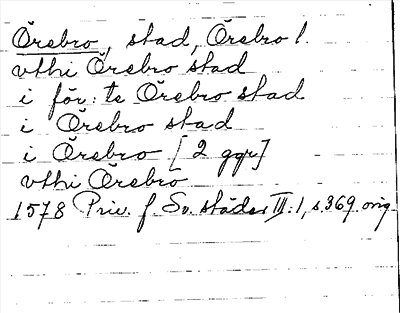 Örebro, stad, Örebro l.
vthi Örebro stad
i för: te Örebro stad
i Örebro stad
i Örebro [2 ggr]
vthi Örebro
1578 Priv. f. Sv. städer III:1, s. 369 orig